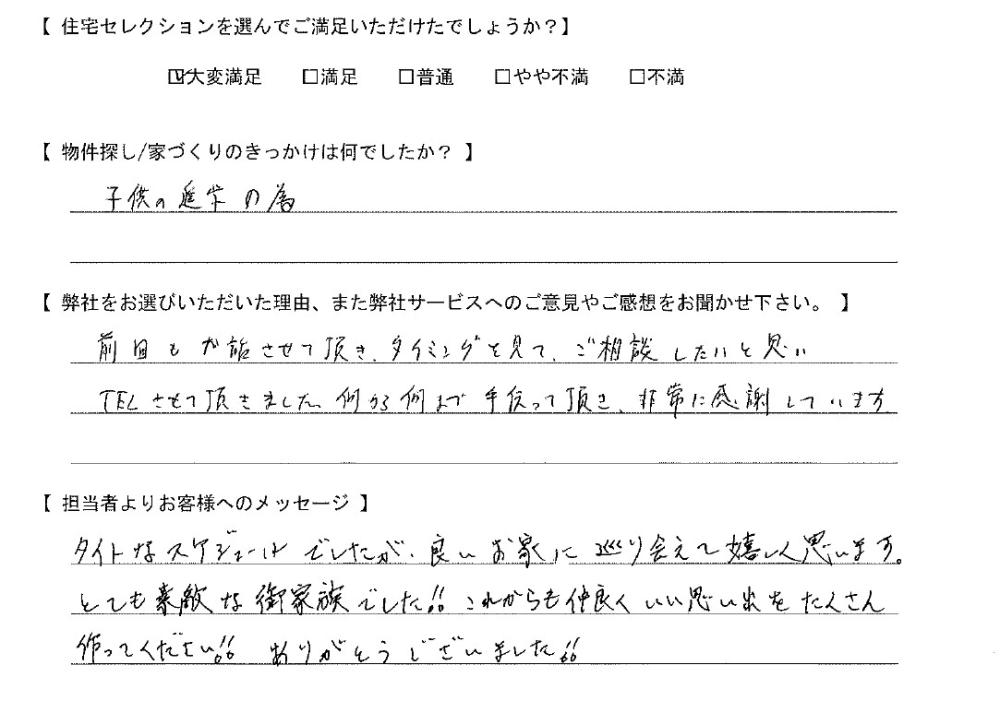 【 住宅セレクションを選んでご満足いただけたでしょうか？】
☑大変満足 □満足 □普通 □やや不満 □不満
【 物件探し/家づくりのきっかけは何でしたか？ 】
子供の進学の為
【 弊社をお選びいただいた理由、また弊社サービスへのご意見やご感想をお聞かせ下さい。 】
前回もお話させて頂き、タイミングを見て、ご相談したいと思い
TELさせて頂きました。何から何まで手伝って頂き、非常に感謝しています。
【 担当者よりお客様へのメッセージ 】
タイトなスケジュールでしたが、良いお家に巡り会えて嬉しく思います。
とても素敵な御家族でした!! これからも仲良くいい思い出をたくさん
作ってください!! ありがとうございました!!